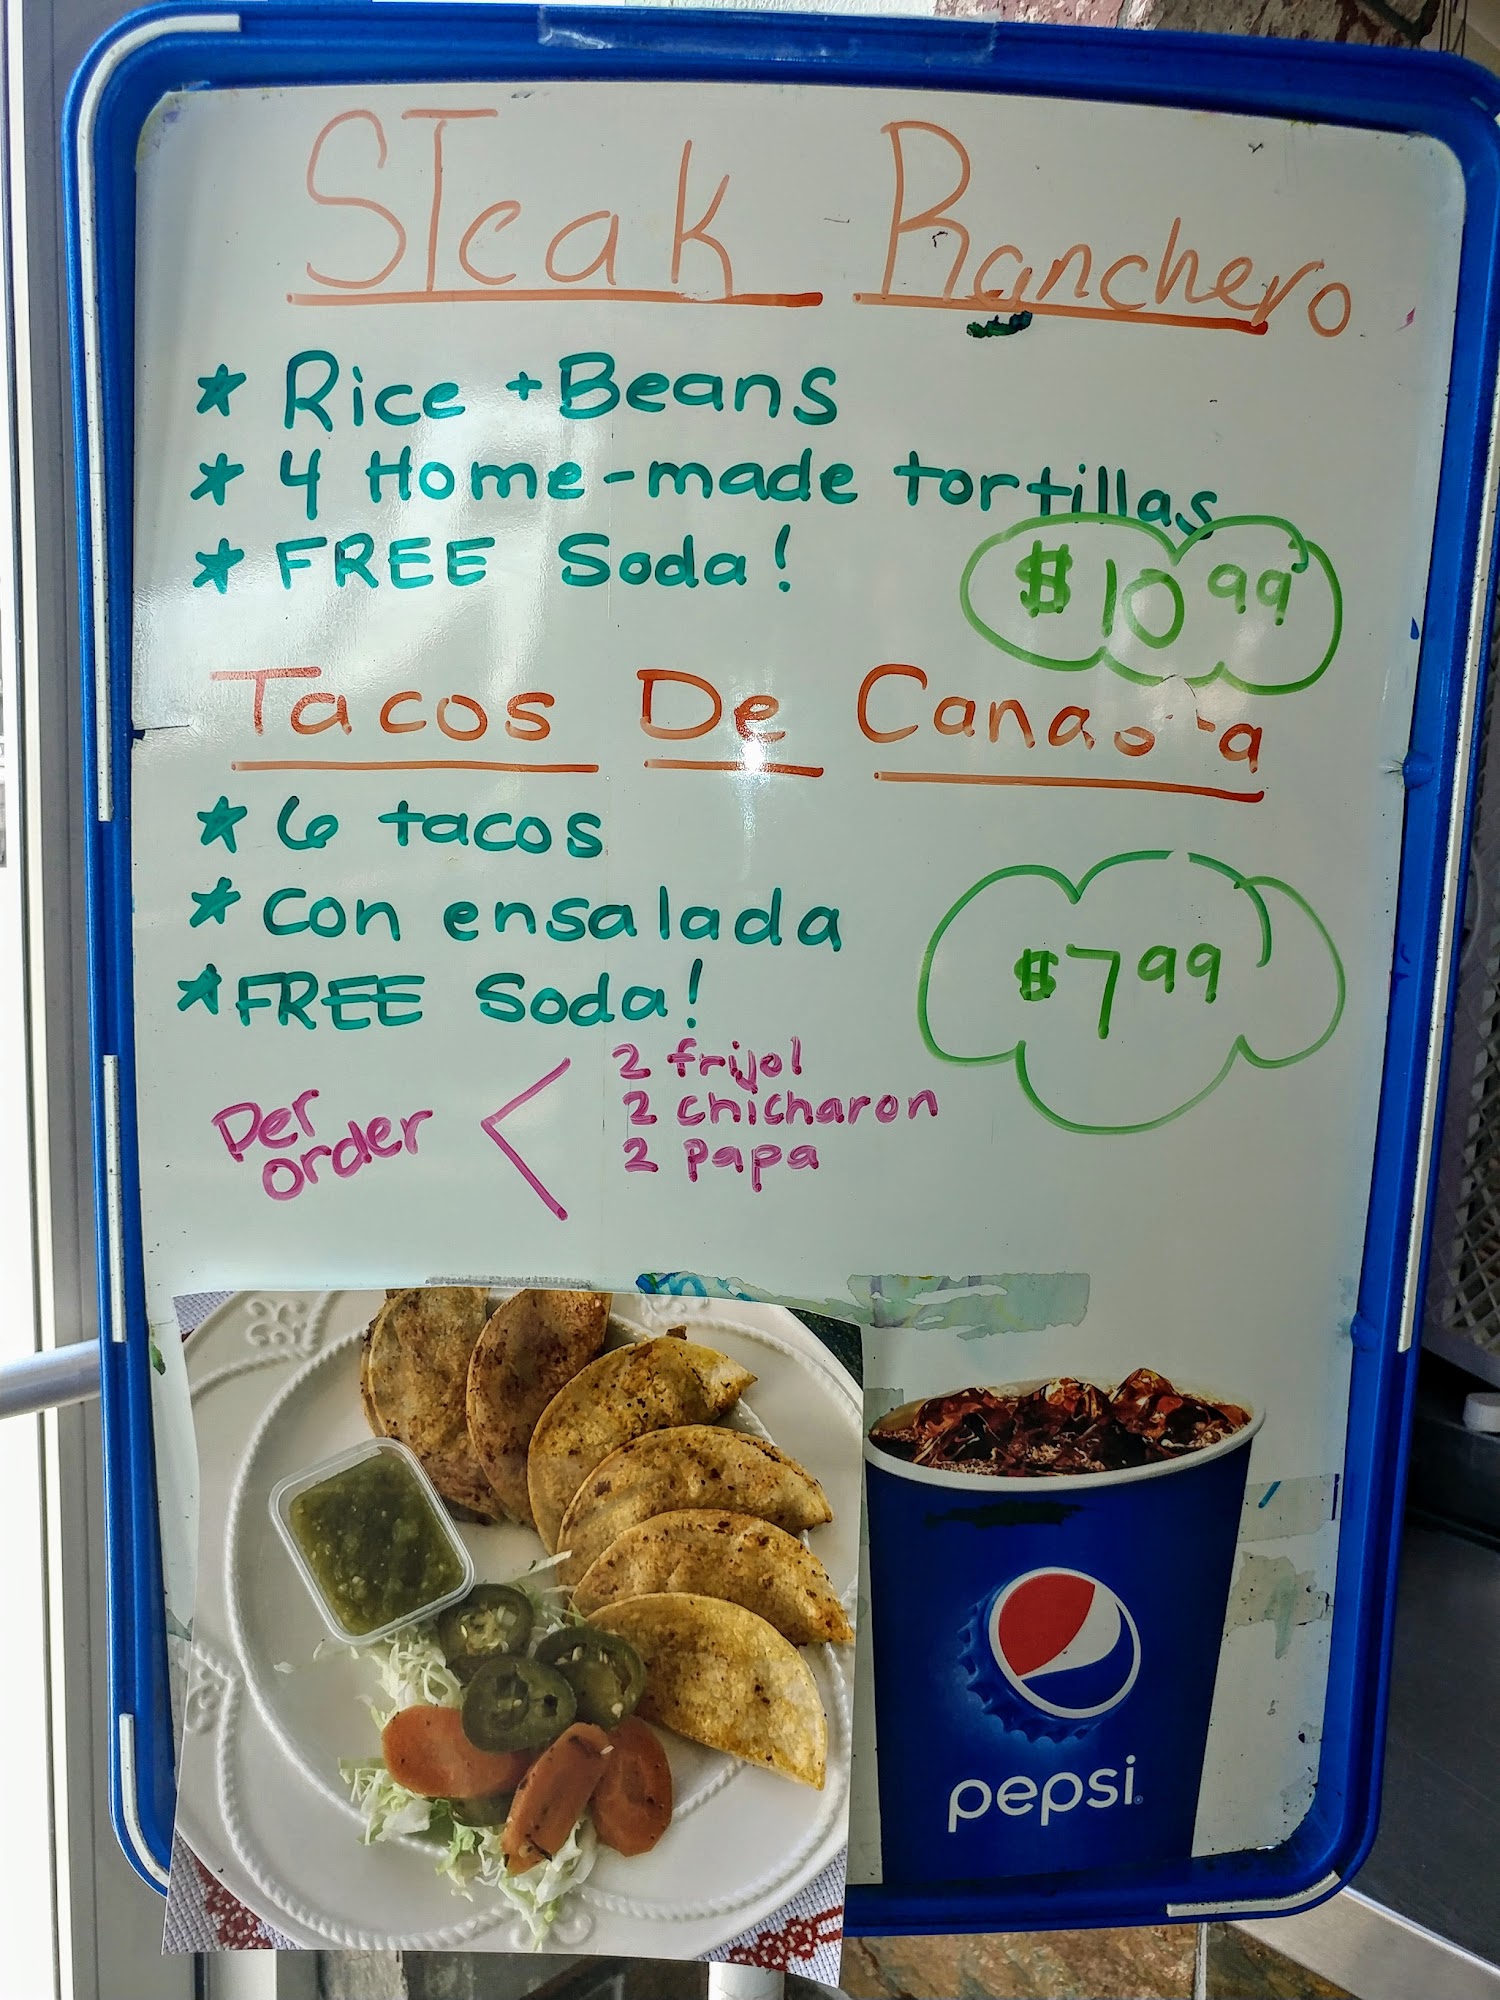 STeak Ranchero
* Rice + Beans
* 4 Home-made tortillas
* FREE Soda!
$10 99
Tacos De
* 6 tacos
* Con ensalada
* FREE Soda!
$7 99
Per order
2 frijol
2 chicharon
2 papa
pepsi